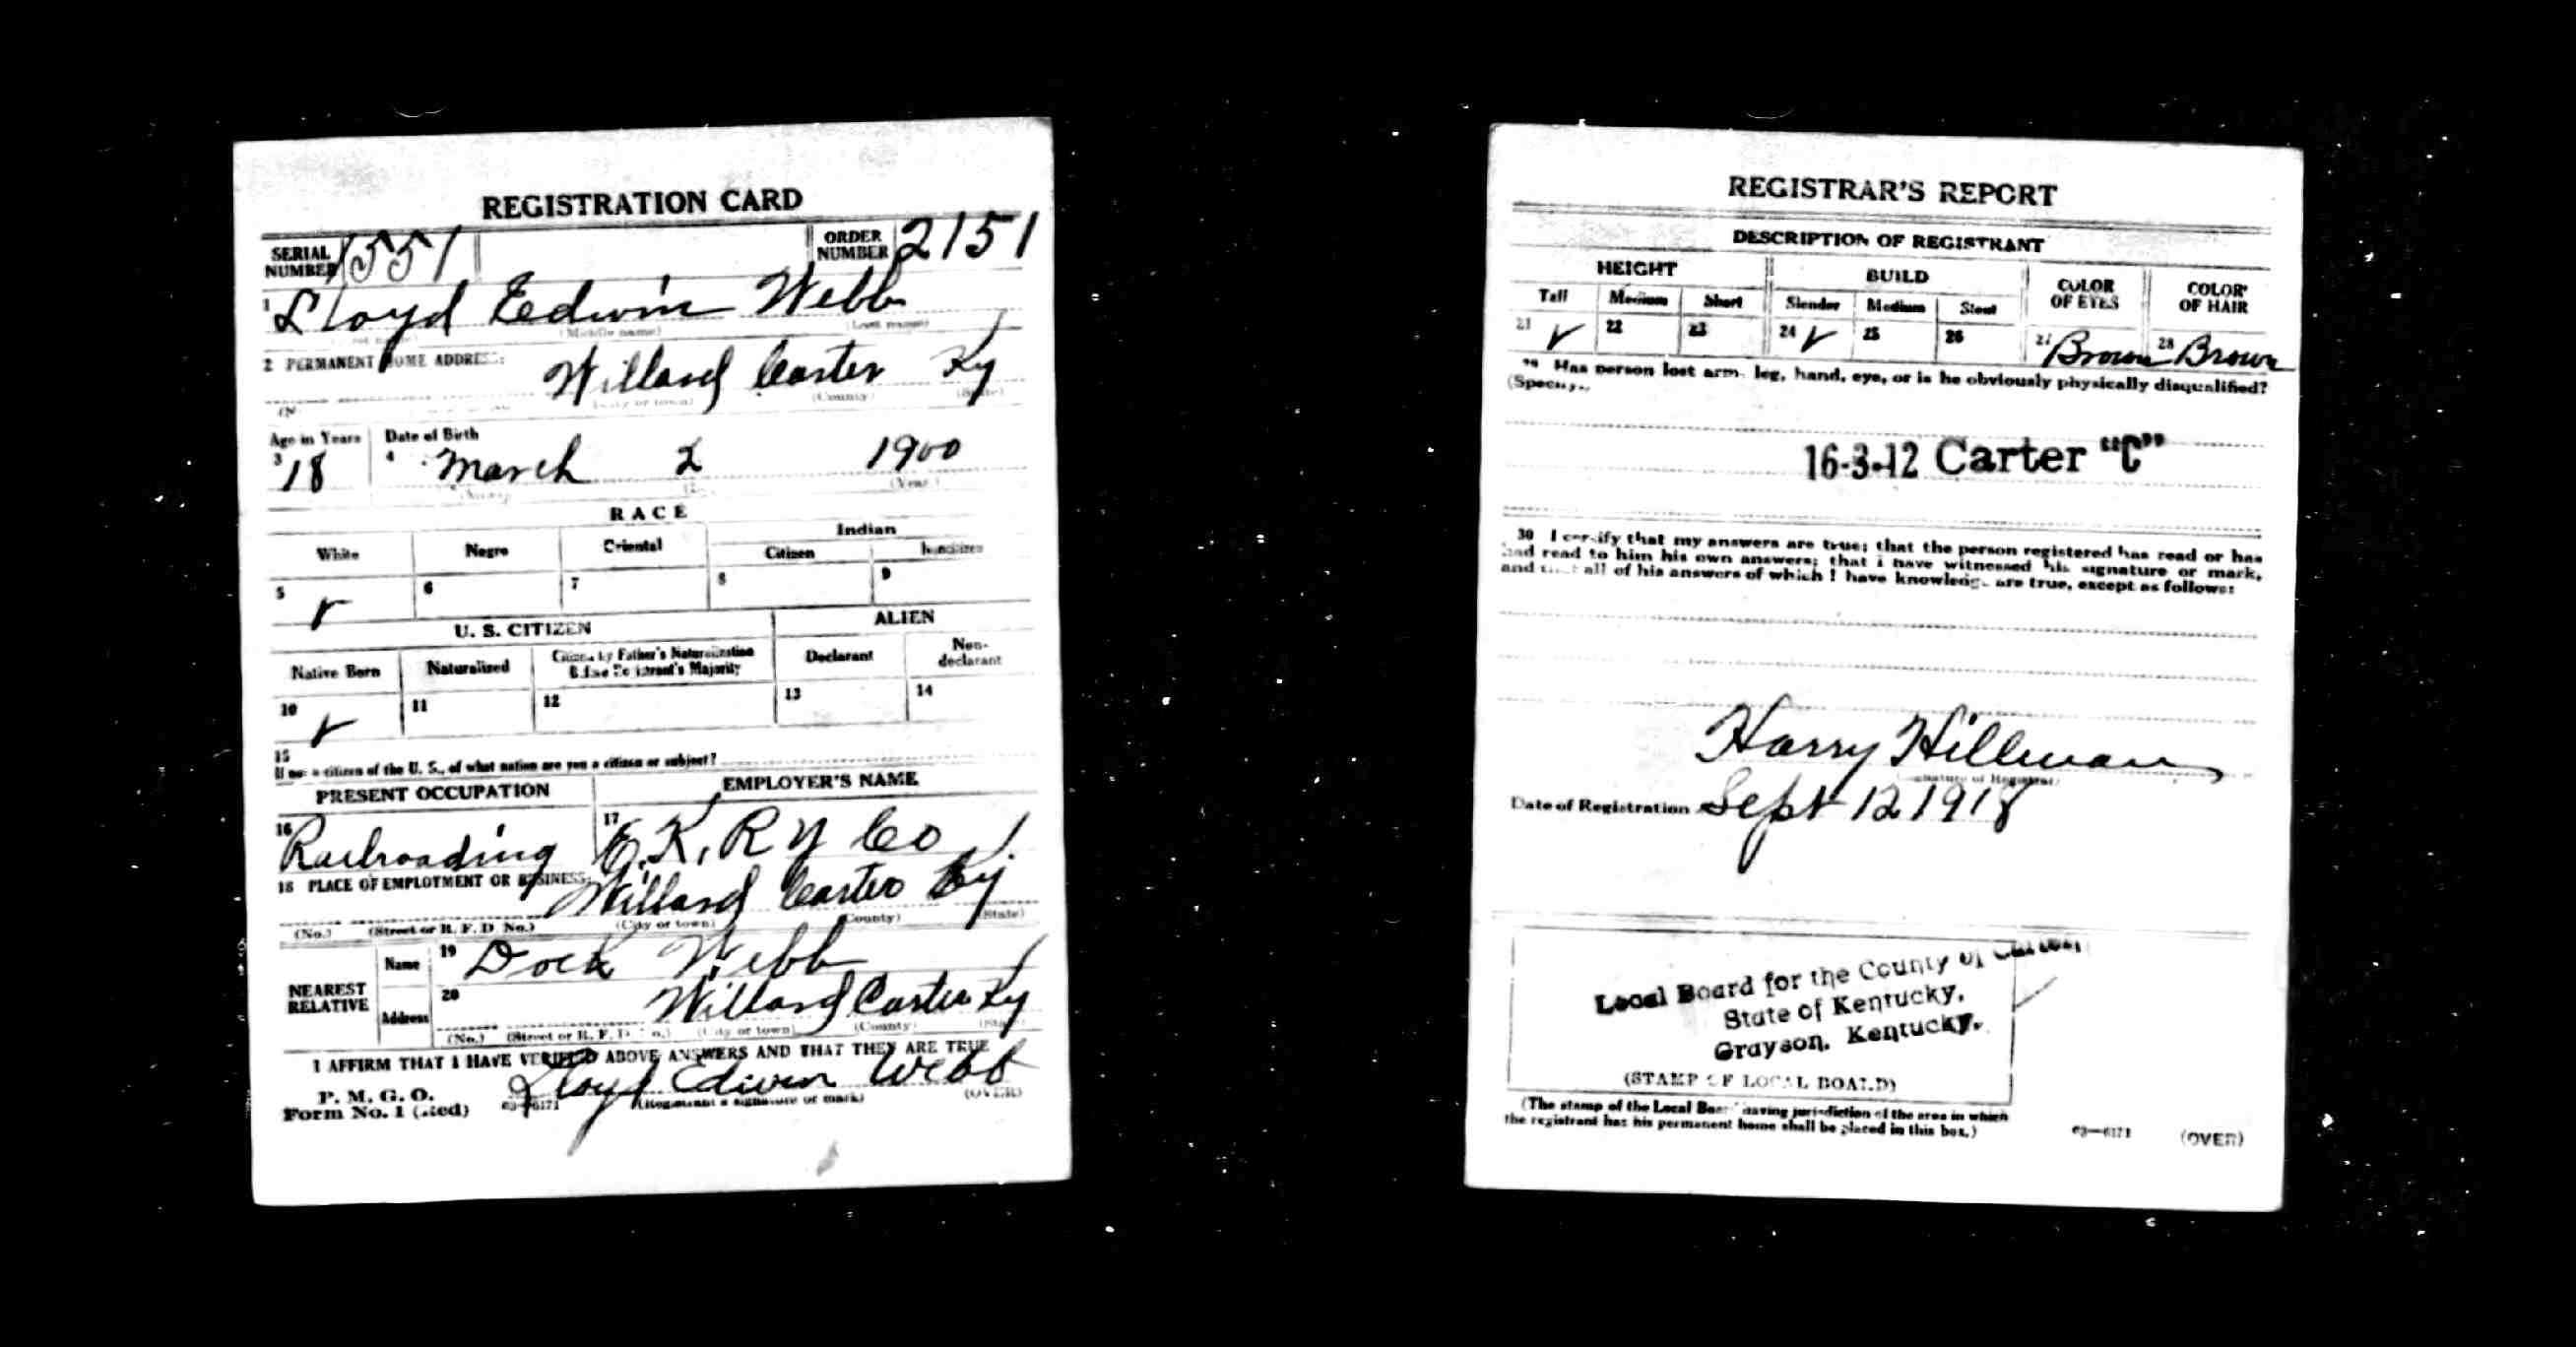 REGISTRATION CARD
SERIAL NUMBER 1551 ORDER NUMBER 2151
1 Lloyd Edwin Webb
(Middle name) (Last name)
2 PERMANENT HOME ADDRESS:
Willard Carter Ky
(County) (State)
Age in Years Date of Birth
3 18 4 March 2 1900
(Year)
RACE
White Negro Oriental Indian
Citizen Noncitizen
5 ✓ 6 7 8 9
U. S. CITIZEN ALIEN
Native Born Naturalized Citizen by Father's Naturalization Before Registrant's Majority Declarant Non-declarant
10 ✓ 11 12 13 14
15
If not a citizen of the U. S., of what nation are you a citizen or subject?
PRESENT OCCUPATION EMPLOYER'S NAME
16 Railroading 17 E. K. Ry Co
18 PLACE OF EMPLOYMENT OR BUSINESS:
Willard Carter Ky
(No.) (Street or R. F. D. No.) (City or town) (County) (State)
NEAREST RELATIVE Name 19 Dock Webb
Address 20 Willard Carter Ky
(No.) (Street or R. F. D. No.) (City or town) (County) (State)
I AFFIRM THAT I HAVE VERIFIED ABOVE ANSWERS AND THAT THEY ARE TRUE
P. M. G. O.
Form No. 1 (Red) 03—6171 Lloyd Edwin Webb
(Registrant's signature or mark) (OVER)
REGISTRAR'S REPORT
DESCRIPTION OF REGISTRANT
HEIGHT BUILD COLOR OF EYES COLOR OF HAIR
Tall Medium Short Slender Medium Stout
21 ✓ 22 23 24 ✓ 25 26 27 Brown 28 Brown
29 Has person lost arm, leg, hand, eye, or is he obviously physically disqualified?
(Specify.)
16-3-12 Carter "C"
30 I certify that my answers are true; that the person registered has read or has
had read to him his own answers; that I have witnessed his signature or mark,
and that all of his answers of which I have knowledge are true, except as follows:
Harry Hillman
(Signature of Registrar)
Date of Registration Sept 12 1918
Local Board for the County of Carter,
State of Kentucky,
Grayson, Kentucky.
(STAMP OF LOCAL BOARD)
(The stamp of the Local Board having jurisdiction of the area in which
the registrant has his permanent home shall be placed in this box.)
03—6171 (OVER)